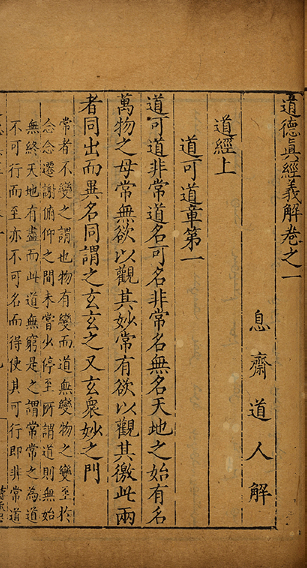 道德眞經義解卷之一
息齋道人解
道經上
道可道章第一
道可道非常道名可名非常名無名天地之始有名
萬物之母常無欲以觀其妙常有欲以觀其徼此兩
者同出而異名同謂之玄玄之又玄衆妙之門
常者不變之謂也物有變而道無變物之變至於
念念遷謝俯仰之間未嘗少停至所謂道則無始
無終天地有盡而此道無窮是之謂常常之爲道
不可行而至亦不可名而得使其可行即非常道